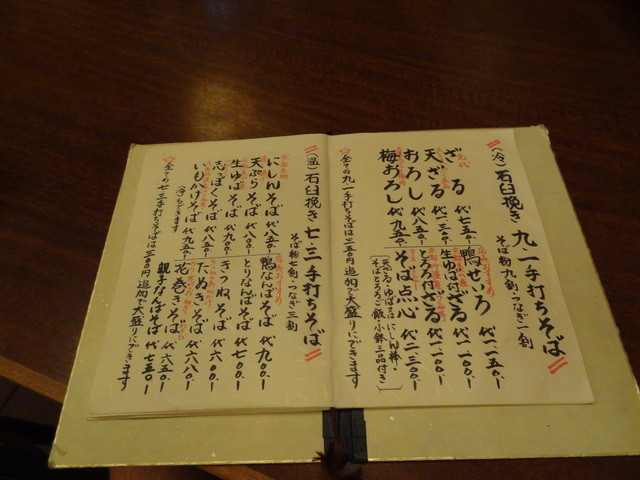 (冷)石臼挽き 九・一手打ちそば
そば粉九割・つなぎ一割
ざる 代七五〇
天ざる 代一三〇〇
おろし 代八五〇
梅おろし 代
鴨せいろ 代一一五〇
生ゆば付ざる 代一一〇〇
とろろ付ざる 代一一〇〇
そば点心 代二三〇〇
天ざる・ゆばそば・にしん棒・
そばとろろご飯・小鉢三品付き
☆全ての九一手打ちそばは三五〇円追加で大盛りにできます
(温)石臼挽き 七・三手打ちそば
そば粉七割・つなぎ三割
にしんそば 代八五〇
天ぷらそば 代八〇〇
生ゆばそば 代九〇〇
志っぽくそば 代八五〇
いもかけそば 代九五〇
(冷)もできます
鴨なんばそば 代九〇〇
とりなんばそば 代七〇〇
きつねそば 代六〇〇
たぬきそば 代六八〇
花巻きそば 代六五〇
親子なんばそば 代七五〇
☆全ての七三手打ちそばは三〇〇円追加で大盛りにできます